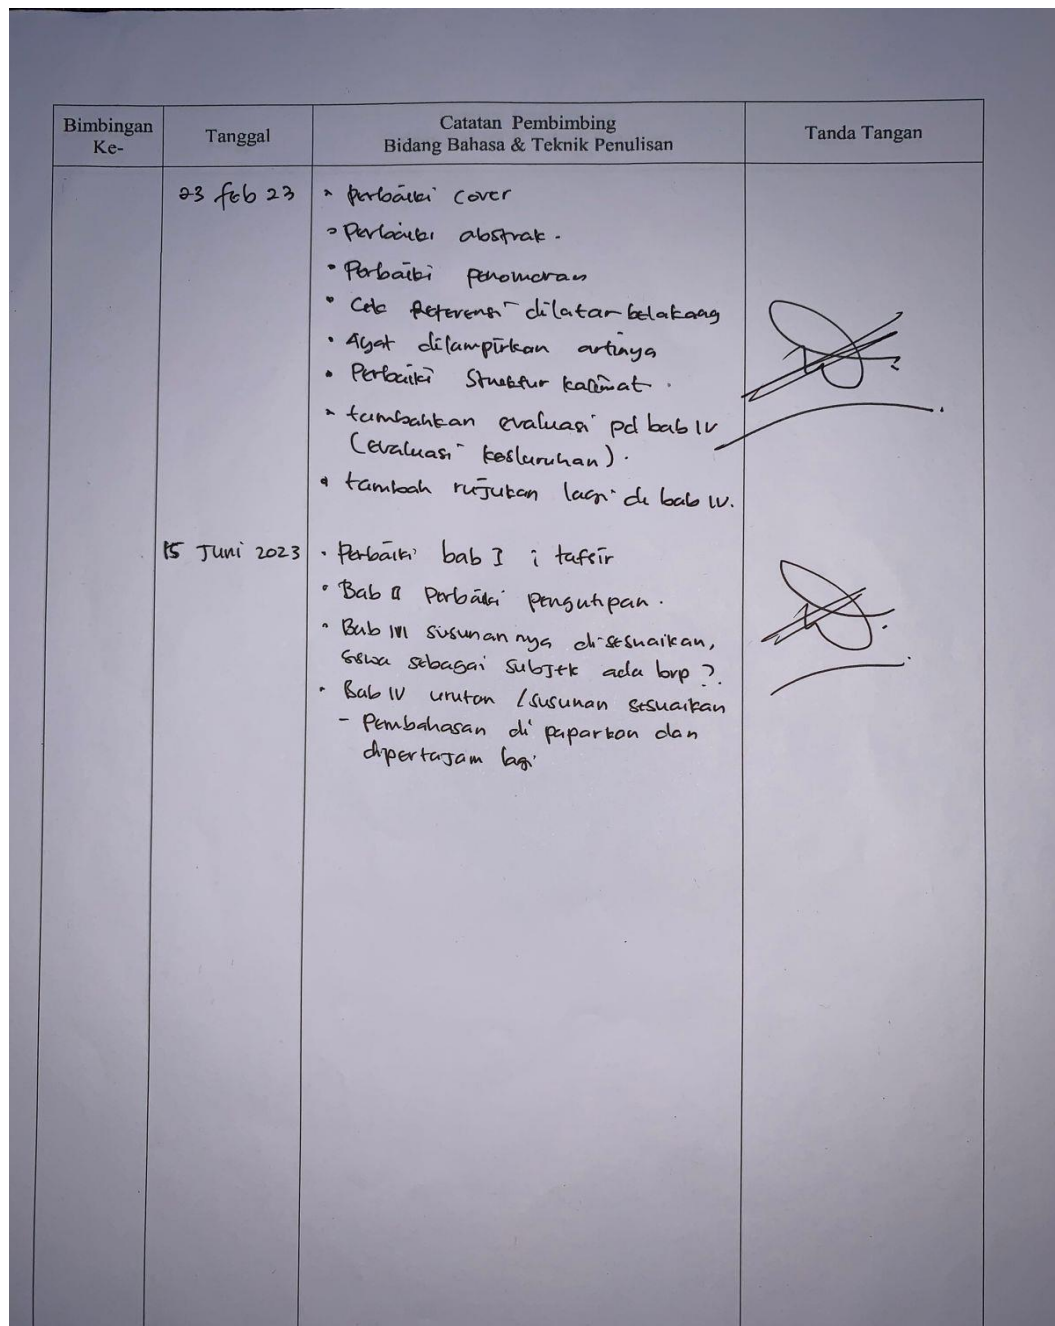 Bimbingan Ke-
Tanggal
Catatan Pembimbing
Bidang Bahasa & Teknik Penulisan
Tanda Tangan
23 feb 23
• Perbaiki cover
• Perbaiki abstrak.
• Perbaiki penomoran
• Cek Referensi dilatar belakang
• Ayat dilampirkan artinya
• Perbaiki Struktur kalimat.
• tambahkan evaluasi pd bab IV
(evaluasi kesluruhan).
• tambah rujukan lagi di bab IV.
15 Juni 2023
• Perbaiki bab I ; tafsir
• Bab II Perbaiki pengutipan.
• Bab III susunan nya disesuaikan,
siswa sebagai subjek ada brp?
• Bab IV urutan /susunan sesuaikan
- Pembahasan di paparkan dan
dipertajam lagi